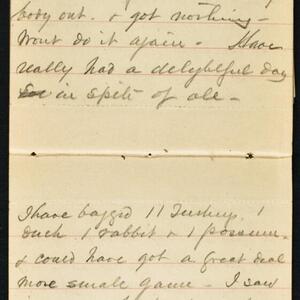 body out. & got nothing -
Wont do it again - Have
really had a delightful day
in spite of all -
I have bagged 11 Turkeys, 1
duck 1 rabbit & 1 possum.
& could have got a great deal
more small game - I saw